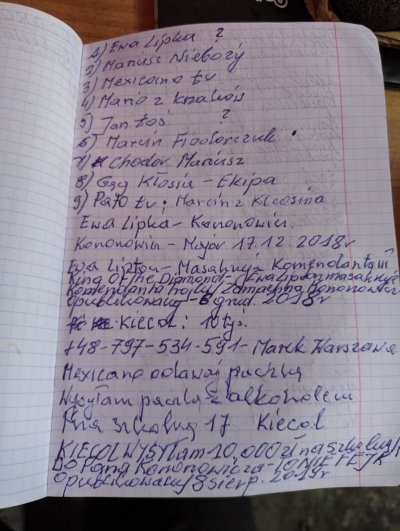 1) Ewa Lipka ?
2) Mariusz Nieboży
3) Mexicano tv
4) Mario z krzaków
5) Jan łoś ?
6) Marcin Fiodorczuk
7) Chodor Mariusz
8) Gąg Kłosia - Ekipa
9) Pato tv; Marcin z Kleosina
Ewa Lipka - Kononowicz
Kononowicz - Major 17.12.2018r
Ewa Lipton - Masakruje Komendantami
King of the Diamond - Ewa Lipton masakruje
Komendantno
opublikowany - 6 grud. 2018r
Kiecol: 10 tyś.
+48-797-534-591 - Marek Warszawa
Mexicano oddawaj paczkę
Wysyłam paczkę z alkoholem
Na szkolną 17 Kiecol
KIECOL WYSYŁAM 10,000 zł na szkolną
DO Pana Kononowicza - TO NIE FEJK
Opublikowany 8 sierp. 2019r